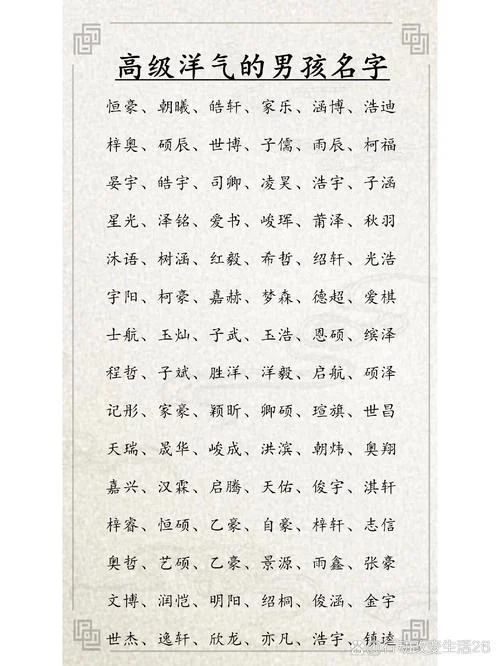 高级洋气的男孩名字
恒豪、朝曦、皓轩、家乐、涵博、浩迪
梓奥、硕辰、世博、子儒、雨辰、柯福
晏宇、皓宇、司卿、凌昊、浩宇、子涵
星光、泽铭、爱书、峻珲、莆泽、秋羽
沐语、树涵、红毅、希哲、绍轩、光浩
宇阳、柯豪、嘉赫、梦森、德超、爱棋
士航、玉灿、子武、玉浩、恩硕、缤泽
程哲、子斌、胜洋、洋毅、启航、硕泽
记彤、家豪、颖昕、卿硕、瑄旗、世昌
天瑞、晟华、峻成、洪滨、朝炜、奥翔
嘉兴、汉霖、启腾、天佑、俊宇、淇轩
梓睿、恒硕、乙豪、自豪、梓轩、志信
奥哲、艺硕、乙豪、景源、雨鑫、张豪
文博、润恺、明阳、绍桐、俊涵、金宇
世杰、逸轩、欣龙、亦凡、浩宇、镇逵
行动改变生活26